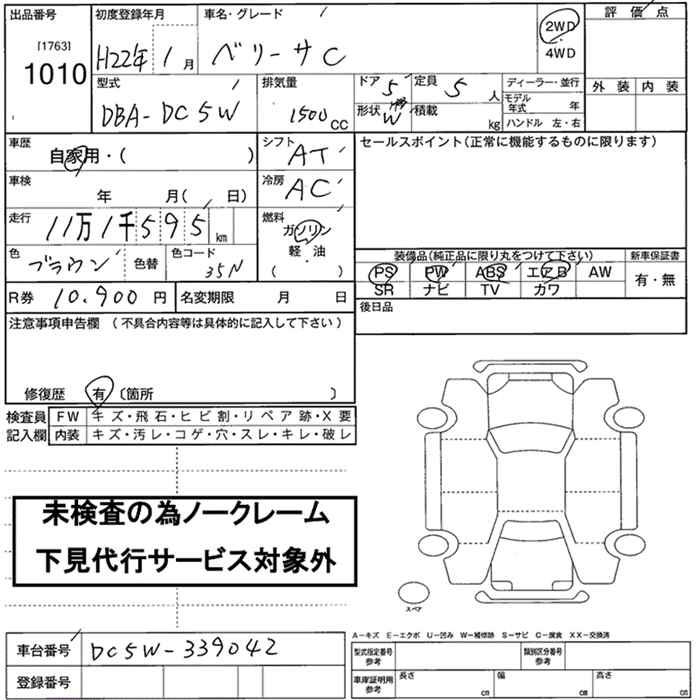 出品番号
[1763]
1010
初度登録年月
H22年 1月
車名・グレード
ベリーサ C
2WD
・
4WD
評価点
外装 内装
型式
DBA-DC5W
排気量
1500 CC
ドア 5
定員 5 人
形状 W
積載 kg
ディーラー・並行
モデル年式 年
ハンドル 左・右
車歴
自家用・( )
シフト
AT
セールスポイント(正常に機能するものに限ります)
車検
年 月( 日)
冷房
AC
走行
11万1千595 km
燃料
ガソリン
軽・油
( )
色
ブラウン
色替
色コード
35N
装備品(純正品に限り丸をつけて下さい)
新車保証書
PS PW ABS エアB AW
SR ナビ TV カワ
有・無
R券 10,900 円
名変期限 月 日
後日品
注意事項申告欄 (不具合内容等は具体的に記入して下さい)
修復歴 有 〔箇所 〕
検査員
記入欄
FW キズ・飛石・ヒビ割・リペア跡・X要
内装 キズ・汚レ・コゲ・穴・スレ・キレ・破レ
未検査の為ノークレーム
下見代行サービス対象外
スペア
車台番号 DC5W-339042
登録番号
A-キズ E-エクボ U-凹み W-補修跡 S-サビ C-腐食 XX-交換済
型式指定番号
参考
類別区分番号
参考
車庫証明用
参考
長さ cm
幅 cm
高さ cm